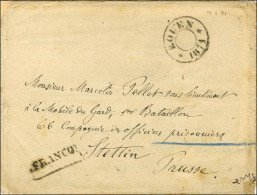 ROUEN
Monsieur Marcelin Pellet sous lieutenant
à la Mobile du Gard, 3e Bataillon
6 Compagnie des officiers prisonniers
FRANCO
Stettin
Prusse